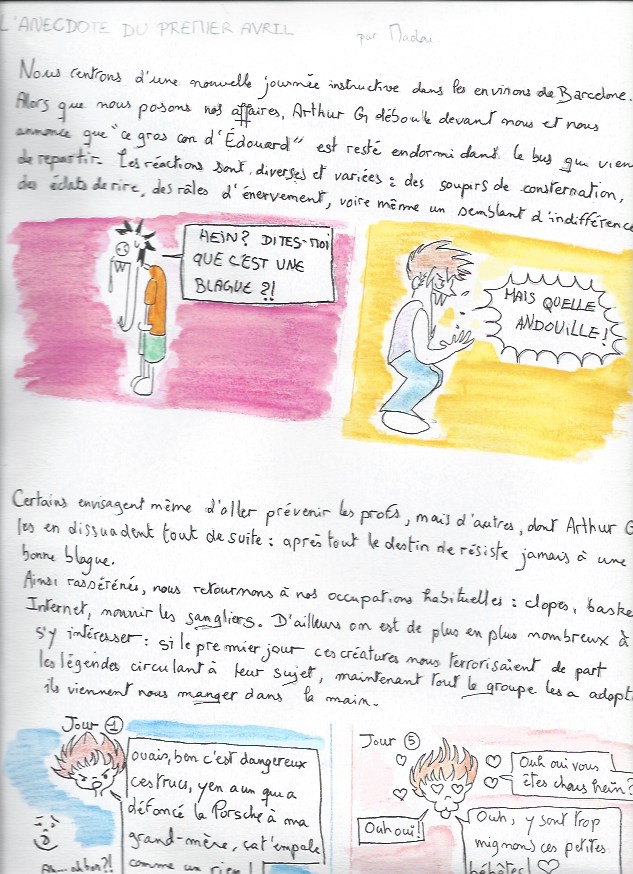 L'ANECDOTE DU PREMIER AVRIL
par Madou
Nous rentrons d'une nouvelle journée instructive dans les environs de Barcelone.
Alors que nous posons nos affaires, Arthur G déboule devant nous et nous
annonce que "ce gros con d'Édouard" est resté endormi dans le bus qui vien
de repartir. Les réactions sont diverses et variées : des soupirs de consternation,
des éclats de rire, des râles d'énervement, voire même un semblant d'indifférence
HEIN? DITES-MOI
QUE C'EST UNE
BLAGUE ?!
MAIS QUELLE
ANDOUILLE !
Certains envisagent même d'aller prévenir les profs, mais d'autres, dont Arthur G
les en dissuadent tout de suite : après tout le destin de résiste jamais à une
bonne blague.
Ainsi rassérénés, nous retournons à nos occupations habituelles : clopes, baske
Internet, nourrir les sangliers. D'ailleurs on est de plus en plus nombreux à
s'y intéresser : si le premier jour ces créatures nous terrorisaient de part
les légendes circulant à leur sujet, maintenant tout le groupe les a adopt
ils viennent nous manger dans la main.
Jour 1
ouais, ben c'est dangereux
ces trucs, y en a un qui a
défoncé la Porsche à ma
grand-mère, ça t'empale
comme un rien !
Ah... ah bon ?!
Jour 5
Ouh oui vous
êtes chous hein?
Ouh oui!
Ouh, y sont trop
mignons ces petites
bébêtes!